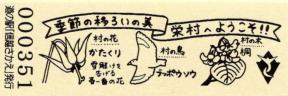 道の駅「信越さかえ」発行
000351
季節の移ろいの美
栄村へようこそ!!
村の花
かたくり
雪解けを
告げる
春一番の花
村の鳥
チョウゲンボウ
村の木
桐